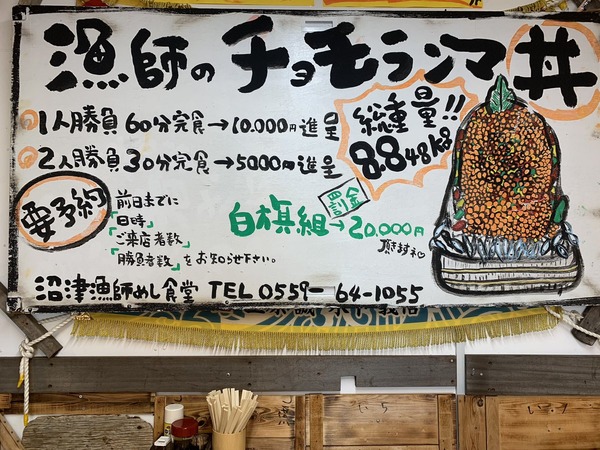 漁師のチョモランマ丼
1人勝負 60分完食→10.000円進呈
2人勝負 30分完食→5000円進呈
総重量!!
8.848kg
要予約
前日までに
「日時」
「ご来店者数」
「勝負者数」をお知らせ下さい。
罰金
白旗組→20,000円
頂きます♡
沼津漁師めし食堂 TEL 0559-64-1055